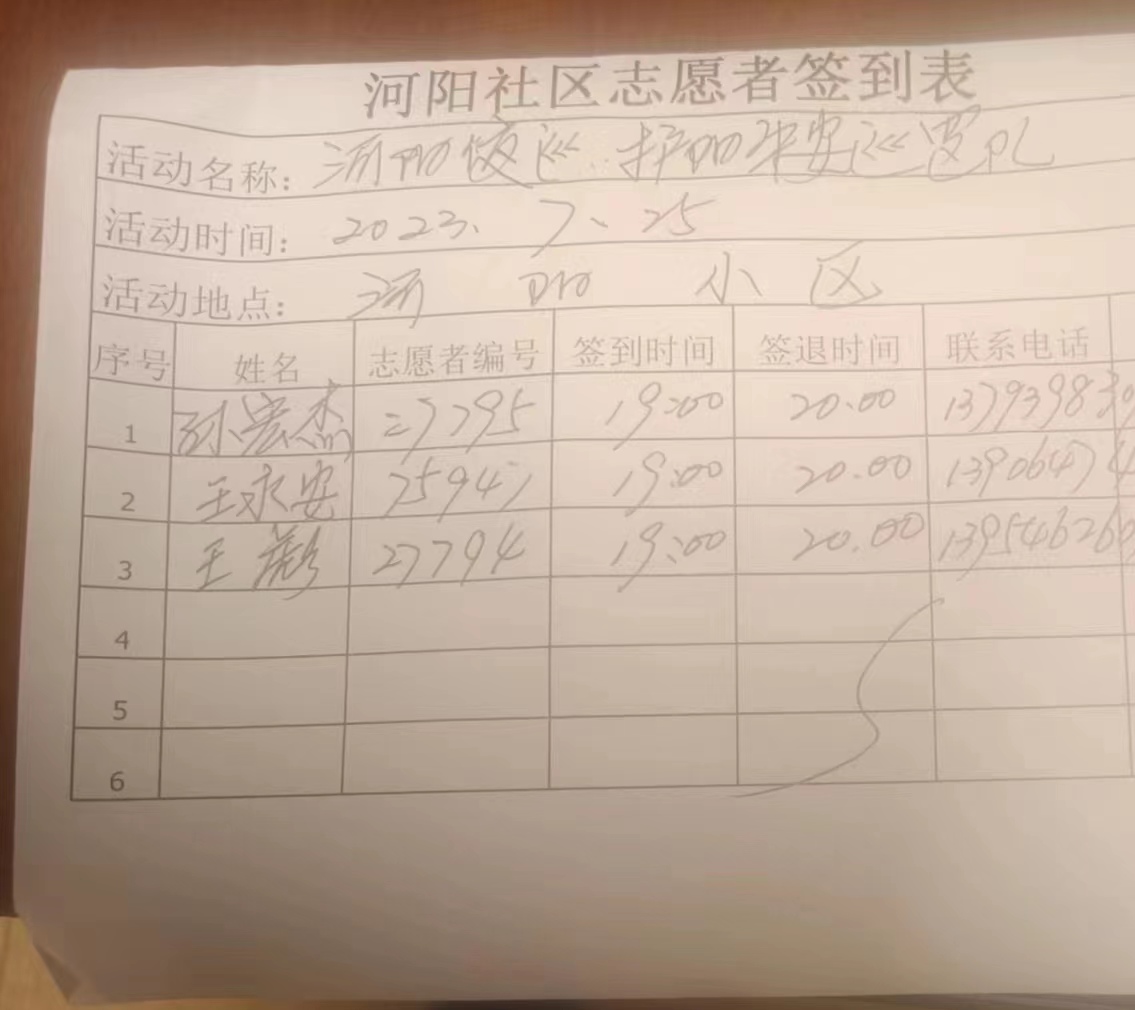 河阳社区志愿者签到表
活动名称: 河阳夜巡 护阳平安巡逻队
活动时间: 2023. 7. 25
活动地点: 河 阳 小 区
序号 姓名 志愿者编号 签到时间 签退时间 联系电话
1 孙宏杰 27795 19:00 20.00 137939839
2 王永安 75947 19:00 20.00 13906474
3 王彪 27794 19:00 20.00 139546260
4
5
6